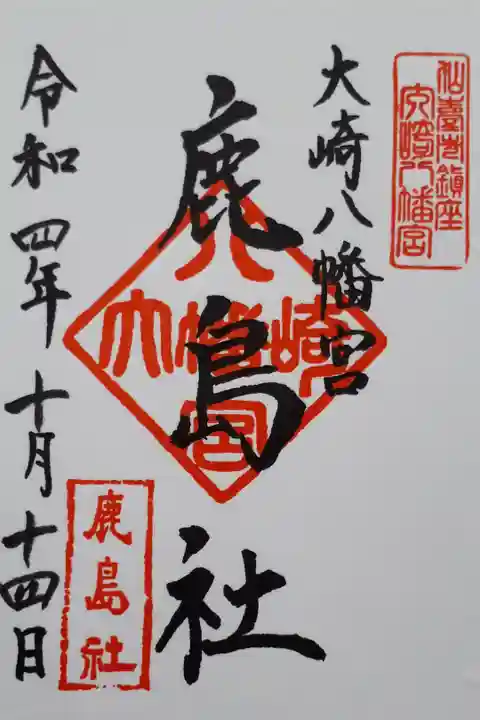 仙臺市鎮座
大崎八幡宮
大崎八幡宮
鹿島社
八
大幡崎
宮
鹿島社
令和四年十月十四日